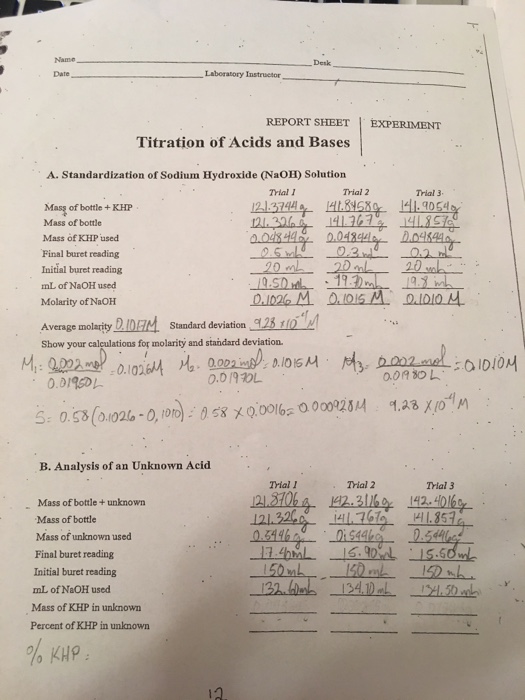 Name
Desk
Date
Laboratory Instructor
REPORT SHEET | EXPERIMENT
Titration of Acids and Bases
A. Standardization of Sodium Hydroxide (NaOH) Solution
Trial 1 Trial 2 Trial 3
Mass of bottle + KHP 121.3744g 141.8458g 141.9054g
Mass of bottle 121.326g 141.767g 141.857g
Mass of KHP used 0.04844g 0.04844g 0.04844g
Final buret reading 0.5 ml 0.3 ml 0.2 ml
Initial buret reading 20 mL 20 mL 20 mL
mL of NaOH used 19.50 mL 19.70 mL 19.8 mL
Molarity of NaOH 0.1026 M 0.1015 M 0.1010 M
Average molarity 0.1017M Standard deviation 9.28 x10⁻⁴M
Show your calculations for molarity and standard deviation.
M₁= 0.002 mol / 0.01950L = 0.1026M M₂= 0.002 mol / 0.01970L = 0.1015M M₃= 0.002 mol / 0.01980L = 0.1010M
S= 0.58(0.1026-0.1010) = 0.58 x 0.0016= 0.000928M 9.28 x10⁻⁴M
B. Analysis of an Unknown Acid
Trial 1 Trial 2 Trial 3
Mass of bottle + unknown 121.8706g 142.3116g 142.4016g
Mass of bottle 121.326g 141.767g 141.857g
Mass of unknown used 0.5446g 0.5446g 0.5446g
Final buret reading 17.40mL 15.90mL 15.50mL
Initial buret reading 150mL 150mL 150mL
mL of NaOH used 132.60mL 134.10mL 134.50mL
Mass of KHP in unknown
Percent of KHP in unknown
% KHP:
12